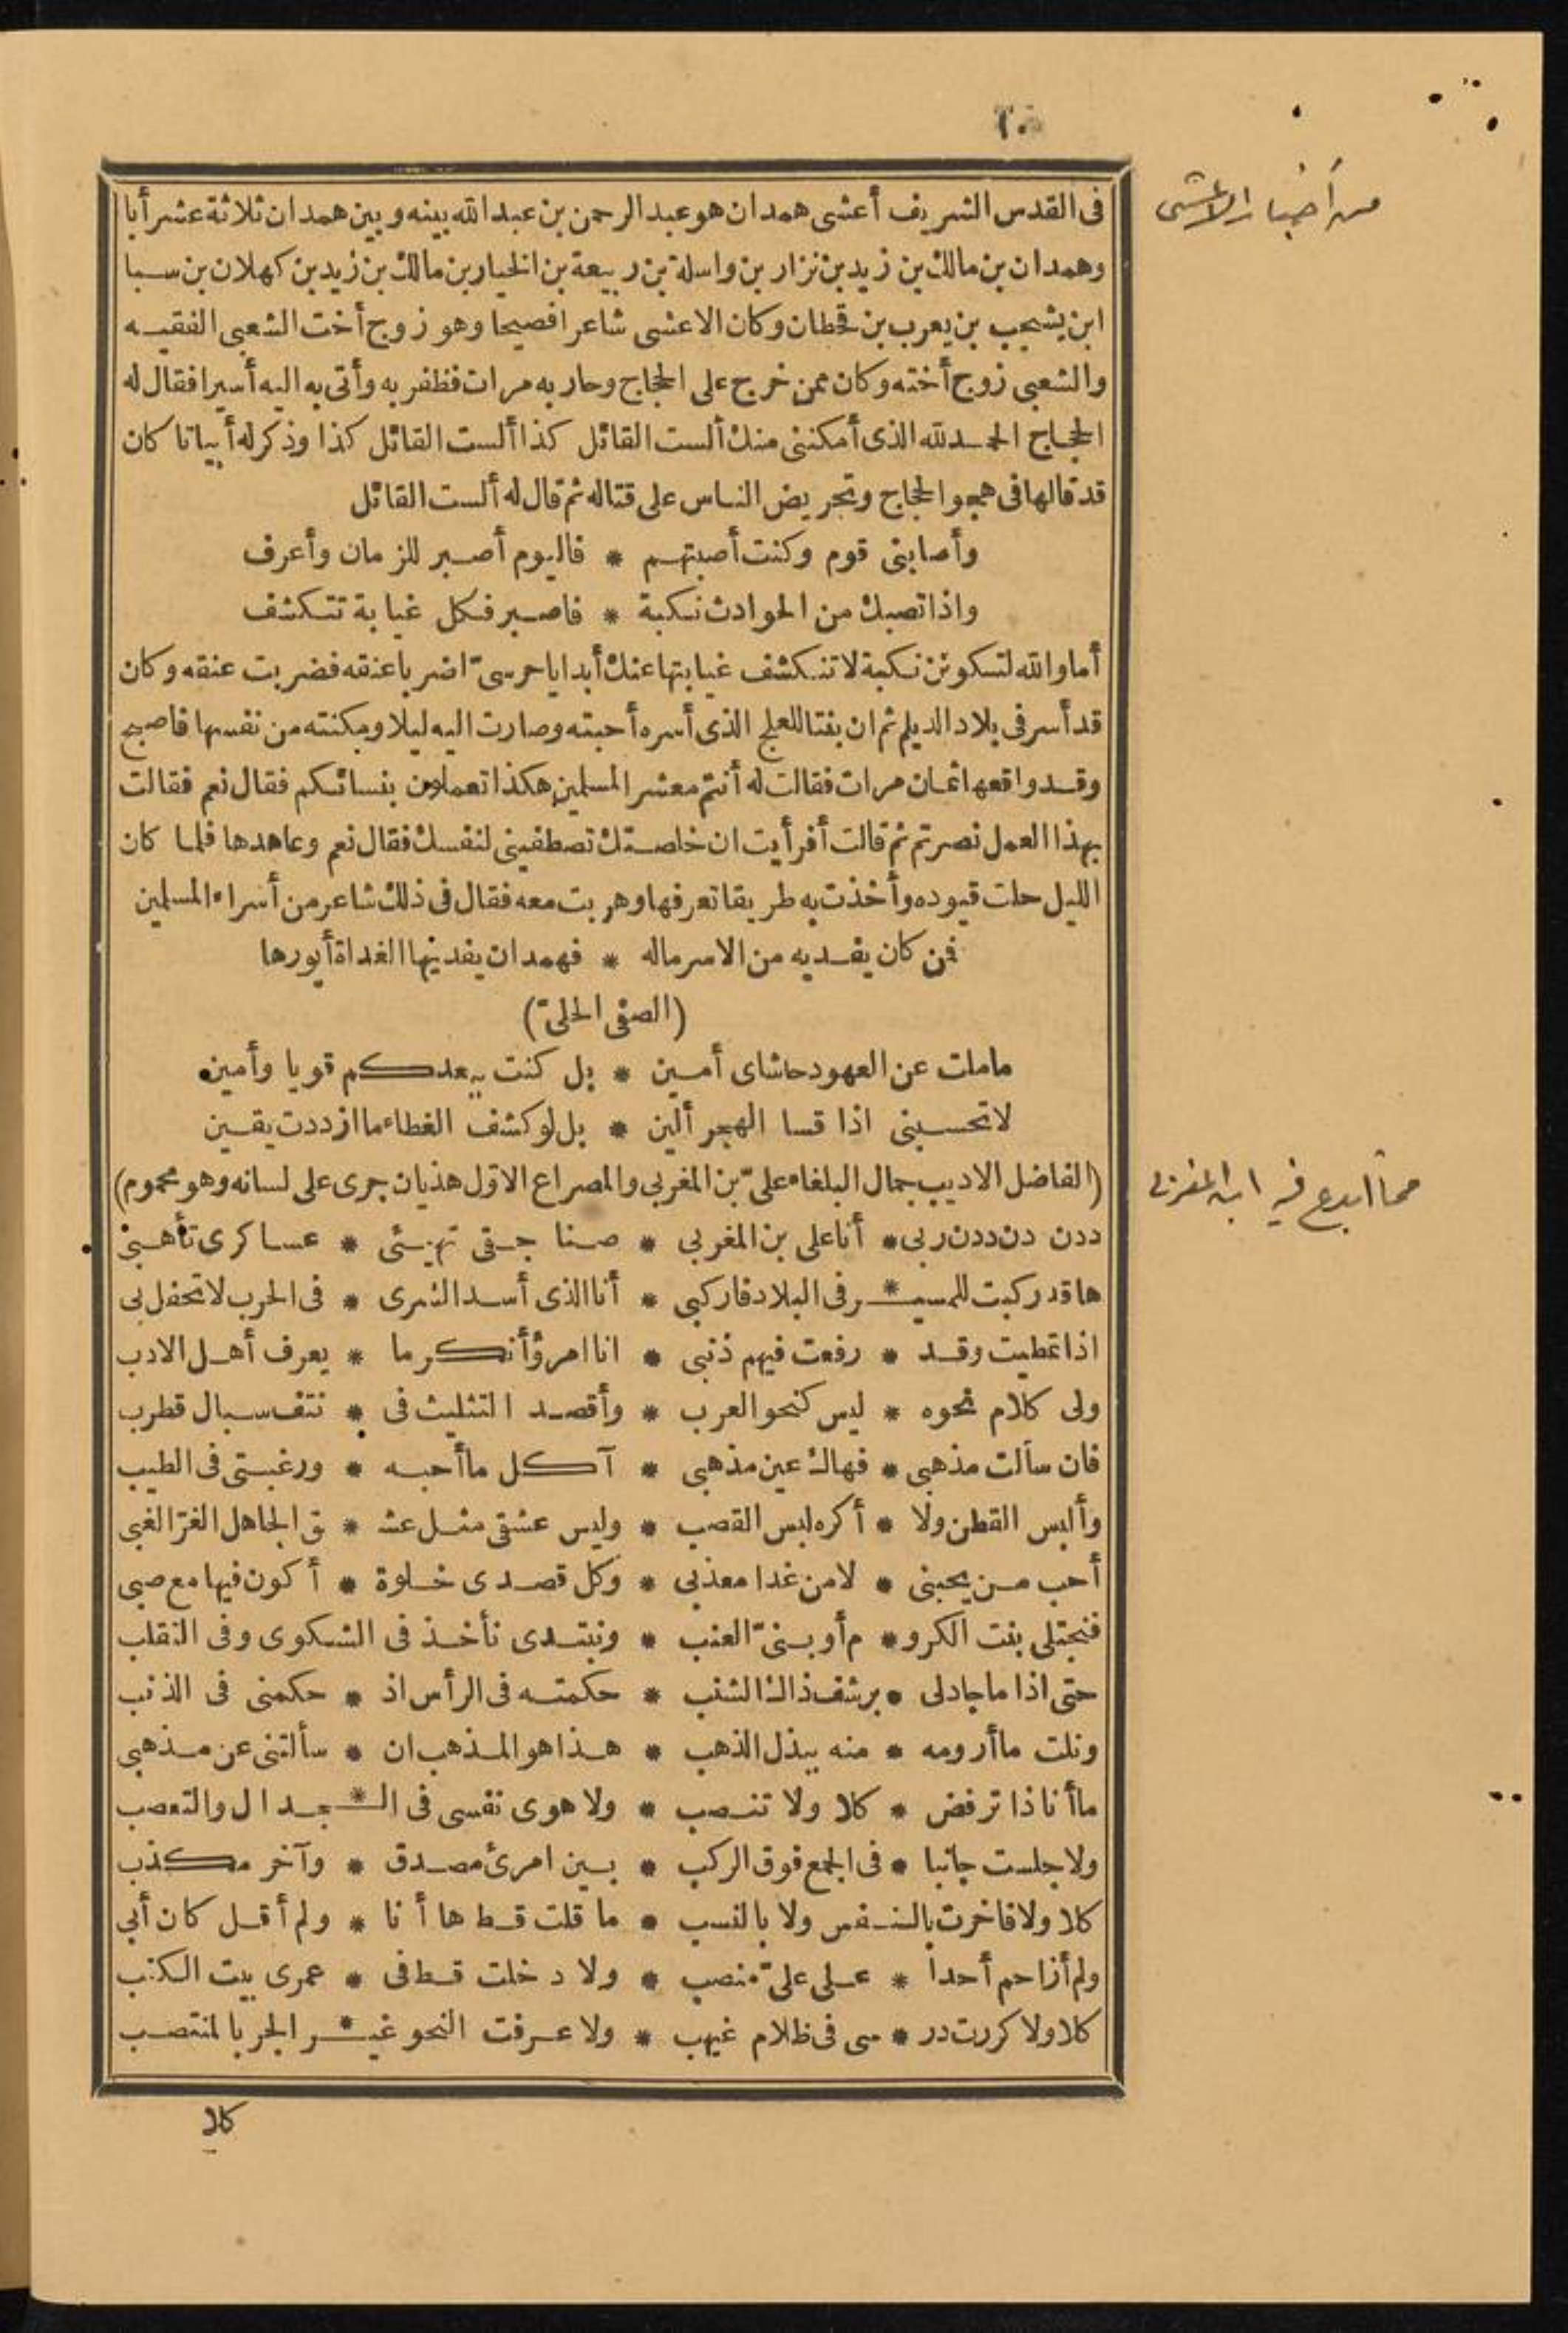 في القدس الشريف أعشى همدان هو عبد الرحمن بن عبد الله بينه وبين همدان ثلاثة عشر أبا
من أخبار الاعشى
وهمدان بن مالك بن زيد بن نزار بن واسلة بن ربيعة بن الخيار بن مالك بن زيد بن كهلان بن سبا
ابن يشجب بن يعرب بن قحطان وكان الاعشى شاعرا فصيحا وهو زوج أخت الشعبى الفقيه
والشعبى زوج أخته وكان ممن خرج على الحجاج وحاربه مرات فظفر به وأتى به اليه أسيرا فقال له
الحجاج الحمد لله الذى أمكننى منك ألست القائل كذا ألست القائل كذا وذكر له أبياتا كان
قد قالها فى هجو الحجاج وتحريض الناس على قتاله ثم قال له ألست القائل
وأصابنى قوم وكنت أصبتهم * فاليوم أصبر للزمان وأعرف
واذا تصبك من الحوادث نكبة * فاصبر فكل غيابة تتكشف
أما والله لتكونن نكبة لا تنكشف غيابتها عنك أبدا يا حرسىّ اضربا عنقه فضربت عنقه وكان
قد أسر فى بلاد الديلم ثم ان بنتا للعلج الذى أسره أحبته وصارت اليه ليلا ومكنته من نفسها فاصبح
وقد واقعها ثمان مرات فقالت له أنتم معشر المسلمين هكذا تعملون بنسائكم فقال نعم فقالت
بهذا العمل نصرتم ثم قالت أفرأيت ان خلصتك تصطفينى لنفسك فقال نعم وعاهدها فلما كان
الليل حلت قيوده وأخذت به طريقا تعرفها وهربت معه فقال فى ذلك شاعر من أسراء المسلمين
فمن كان يفديه من الاسر ماله * فهمدان يفديها الغداة أيورها
(الصفى الحلىّ)
ماملت عن العهود حاشاى أمين * بل كنت بعدكم قويا وأمين
لا تحسبنى اذا قسا الهجر ألين * بل لو كشف الغطاء ما ازددت يقين
(الفاضل الاديب جمال البلغاء علىّ بن المغربى والمصراع الاوّل هذيان جرى على لسانه وهو محموم)
مما أبدع فيه ابن المغربى
ددن دن ددن ربى * أنا على بن المغربى * صنا جقى تهيئى * عساكرى تأهبى
ها قد ركبت للمسيـ * ـر فى البلاد فاركبى * أنا الذى أسد الشرى * فى الحرب لا تحفل بى
اذا تمطيت وقد * رفعت فيهم ذنبى * انا امرؤ أنكر ما * يعرف أهل الادب
ولى كلام نحوه * ليس كنحو العرب * وأقصد التثليث فى * نتف سبال قطرب
فان سألت مذهبى * فهاك عين مذهبى * آكل ما أحبه * ورغبتى فى الطيب
وألبس القطن ولا * أكره لبس القصب * وليس عشقى مثل عشـ * ـق الجاهل الغرّ الغبى
أحب من يحبنى * لا من غدا معذبى * وكل قصدى خلوة * أكون فيها مع صبى
فنجتلى بنت الكرو * م أو بنىّ العنب * ونبتدى نأخذ فى الشكوى وفى التقلب
حتى اذا ما جاد لى * برشف ذاك الشنب * حكمته فى الرأس اذ * حكمنى فى الذنب
ونلت ما أرومه * منه ببذل الذهب * هذا هو المذهب ان * سألتنى عن مذهبى
ما أنا ذا ترفض * كلا ولا تنصب * ولا هوى نفسى فى الـ * ـجدال والتعصب
ولا جلست جاثيا * فى الجمع فوق الركب * بين امرئ مصدق * وآخر مكذب
كلا ولا فاخرت بالنفس ولا بالنسب * ما قلت قط ها أنا * ولم أقل كان أبى
ولم أزاحم أحدا * على علىّ منصب * ولا دخلت قط فى * عمرى بيت الكتب
كلا ولا كررت در * سى فى ظلام غيهب * ولا عرفت النحو غيـ * ـر الجر بالمنتصب
كلا